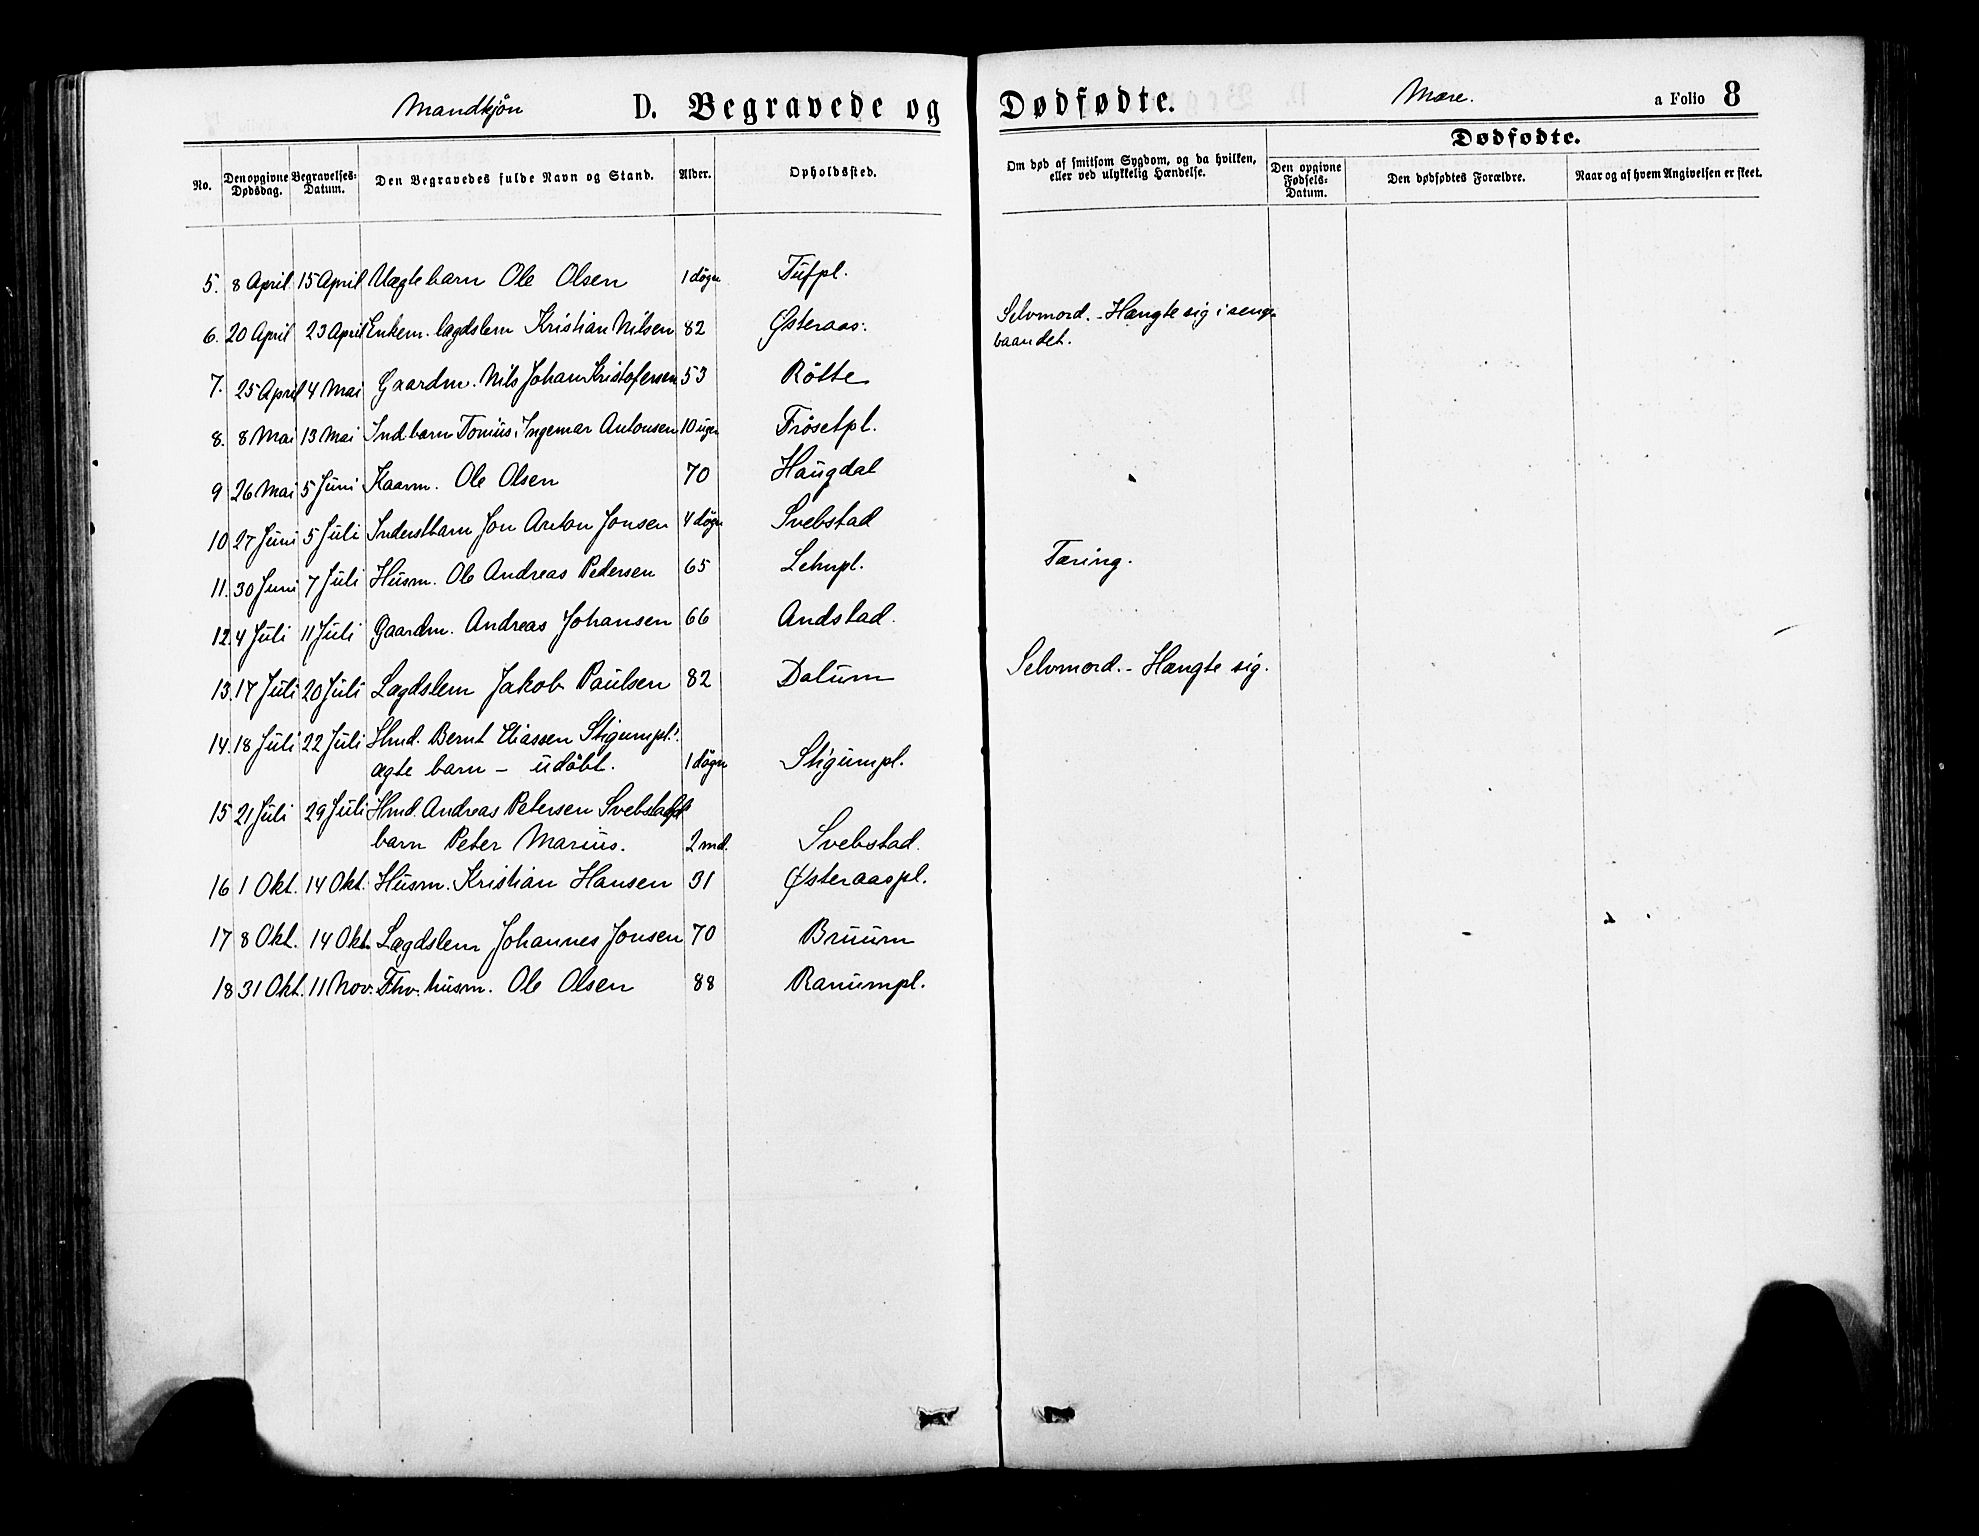 Mandkjøn D. Begravede og Dødfødte. Mære. a Folio 8
No. Den opgivne Dødsdag. Begravelses-Datum. Den Begravedes fulde Navn og Stand. Alder. Opholdssted. Om død af smitsom Sygdom, og da hvilken, eller ved ulykkelig Hændelse. Dødfødte. Den opgivne Fødsels-Datum. Den dødfødtes Forældre. Naar og af hvem Angivelsen er skeet.
5. 8 April 15 April Uægte barn Ole Olsen 1 døgn Tufpl.
6. 20 April 23 April Enkem. lægdslem Kristian Nilsen 82 Østeraas. Selvmord. - Hængte sig i senge-
baandet.
7. 25 April 4 Mai Gaardm. Nils Johan Kristofersen 53 Røtte
8. 8 Mai 13 Mai Ind. barn Tonius Ingemar Antonsen 10 uger Frøsetpl.
9 26 Mai 5 Juni Kaarm. Ole Olsen 70 Haugdal
10 27 Juni 5 Juli Inderstbarn Jon Anton Jonsen 4 døgn Svebstad
11. 30 Juni 7 Juli Husm. Ole Andreas Pedersen 65 Lehnpl. Tæring.
12. 4 Juli 11 Juli Gaardm. Andreas Johansen 66 Andstad.
13. 17 Juli 20 Juli Lægdslem Jakob Paulsen 82 Dalum Selvmord. - Hængte sig.
14. 18 Juli 22 Juli Hmd. Bernt Eliassen Stigumpl.
ægte barn - udøbt. 1 døgn Stigumpl.
15 21 Juli 29 Juli Hmd. Andreas Petersen Svebstadpl
barn Peter Marius. 2 md. Svebstad.
16 1 Okt. 14 Okt. Husm. Kristian Hansen 31 Østeraaspl.
17 8 Okt. 14 Okt. Lægdslem Johannes Jonsen 70 Bruum
18 31 Okt. 11 Nov. Fhv. husm. Ole Olsen 88 Ranumpl.